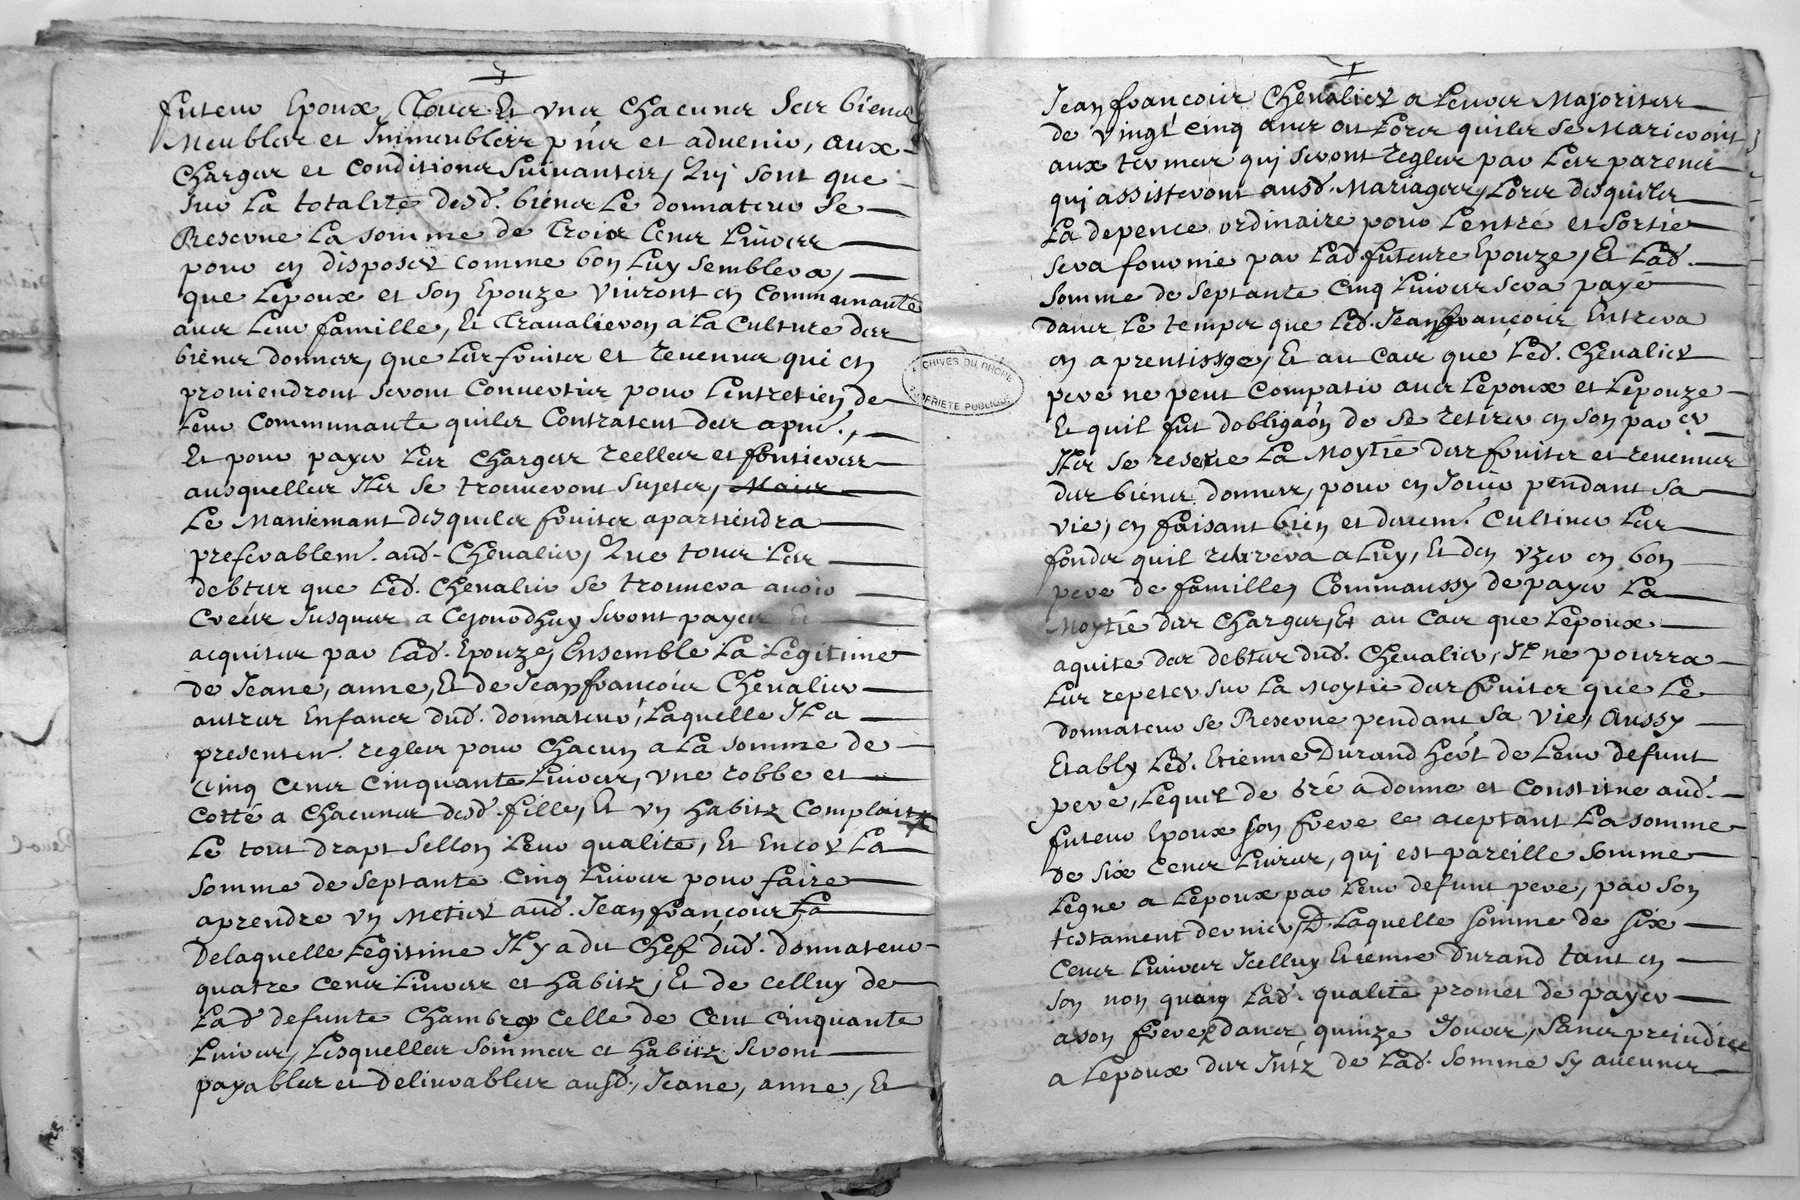 futeur Epoux, Tous Et uns chacuns Ses biens
Meubles et Immeubles pñts et aduenir, aux
charges et conditions Suiuantes, Quj sont que
sur La totalité desd. biens Le donnateur Se
Reserue La somme de Trois Cens Liures
pour en disposer comme bon Luy Semblera,
que Lepoux et Son Epouze viuront en communauté
auec Leur famille, Et Trauallieron a La Culture des
biens donnes, que Les fruites et reuenus qui en
prouiendront seront Conuertis pour Lentretien de
Leur Communauté quils Contratent des apñt.,
Et pour payer Les charges reelles et fonsieres
ausquelles Ils se trouueront sujetes,
Le Maniemant desquels fruites apartiendra
preferablemt. aud. Cheualier, Que tous Les
debtes que Led. Cheualier se trouuera auoir
Creés Jusques a Cejourdhuy seront payes Et
acquites par Lad. Epouze, Ensemble La Legitime
de Jeane, anne, Et de Jean francois Cheualier
autres Enfans dud. donnateur, Laquelle Il a
presentemt. regles pour chacun a La somme de
Cinq Cens Cinquante Liures, vne robbe et
cotte a chacunes desd. fille, Et vn habitz Complait
Le tout drapt Sellon Leur qualité, Et Encor La
somme de septante Cinq Liures pour faire
aprendre vn Metier aud. Jean francois
Delaquelle Legitime Il y a du Chef dud. donnateur
quatre Cens Liures et habitz, Et de celluy de
Lad defunte Chambre Celle de Cent Cinquante
Liures, Lesquelles Sommes et habitz seront
payables et deliurables ausd., Jeane, anne, Et
ARCHIVES DU RHÔNE
PROPRIETE PUBLIQUE
Jean francois Cheualier a Leurs Majorites
de vingt cinq ans ou Lors quils se Marieroint
aux termes quj seront regles par Les parens
quj assisteront ausd. Mariages, Lors desquels
La depence ordinaire pour Lentré et Sortie
sera fournie par Lad. futeure Epouze, Et Lad.
somme de septante Cinq Liures sera payé
dans Le temps que Led. Jean francois Entrera
en aprentissge, Et au cas que Led. Cheualier
pere ne peut Compatir auec Lepoux et Lepouze
Et quil fut dobligaōn de se retirer en son par er
Il se reserue La Moytié des fruites et reuenus
des biens donnes, pour en Jouir pendant sa
vie, en faisant bien et deuemt. Cultiuer Les
fonds quil retirera a Luy, Et den vzer en bon
pere de famille, Commaussy de payer La
Moytié des charges, Et au cas que Lepoux
aquite des debtes dud. Cheualier, Il ne pourra
Les repeter sur La Moytié des fruites que Le
donnateur se Reserue pendant sa vie, Aussy
Etably Led. Etienne Durand hert. de Leur defunt
pere, Lequel de gré a donne et Constitue aud.
futeur Epoux son frere ce aceptant La somme
de six Cens Liures, quj est pareille somme
Legue a Lepoux par Leur defunt pere, par son
testament dernier, Laquelle somme de six
Cens Liures Icelluy Etienne Durand tant en
son non quen Lad. qualité promet de payer
a son frere dans quinze Jours, sans prejudice
a Lepoux des Intz de Lad. somme sy aucuns